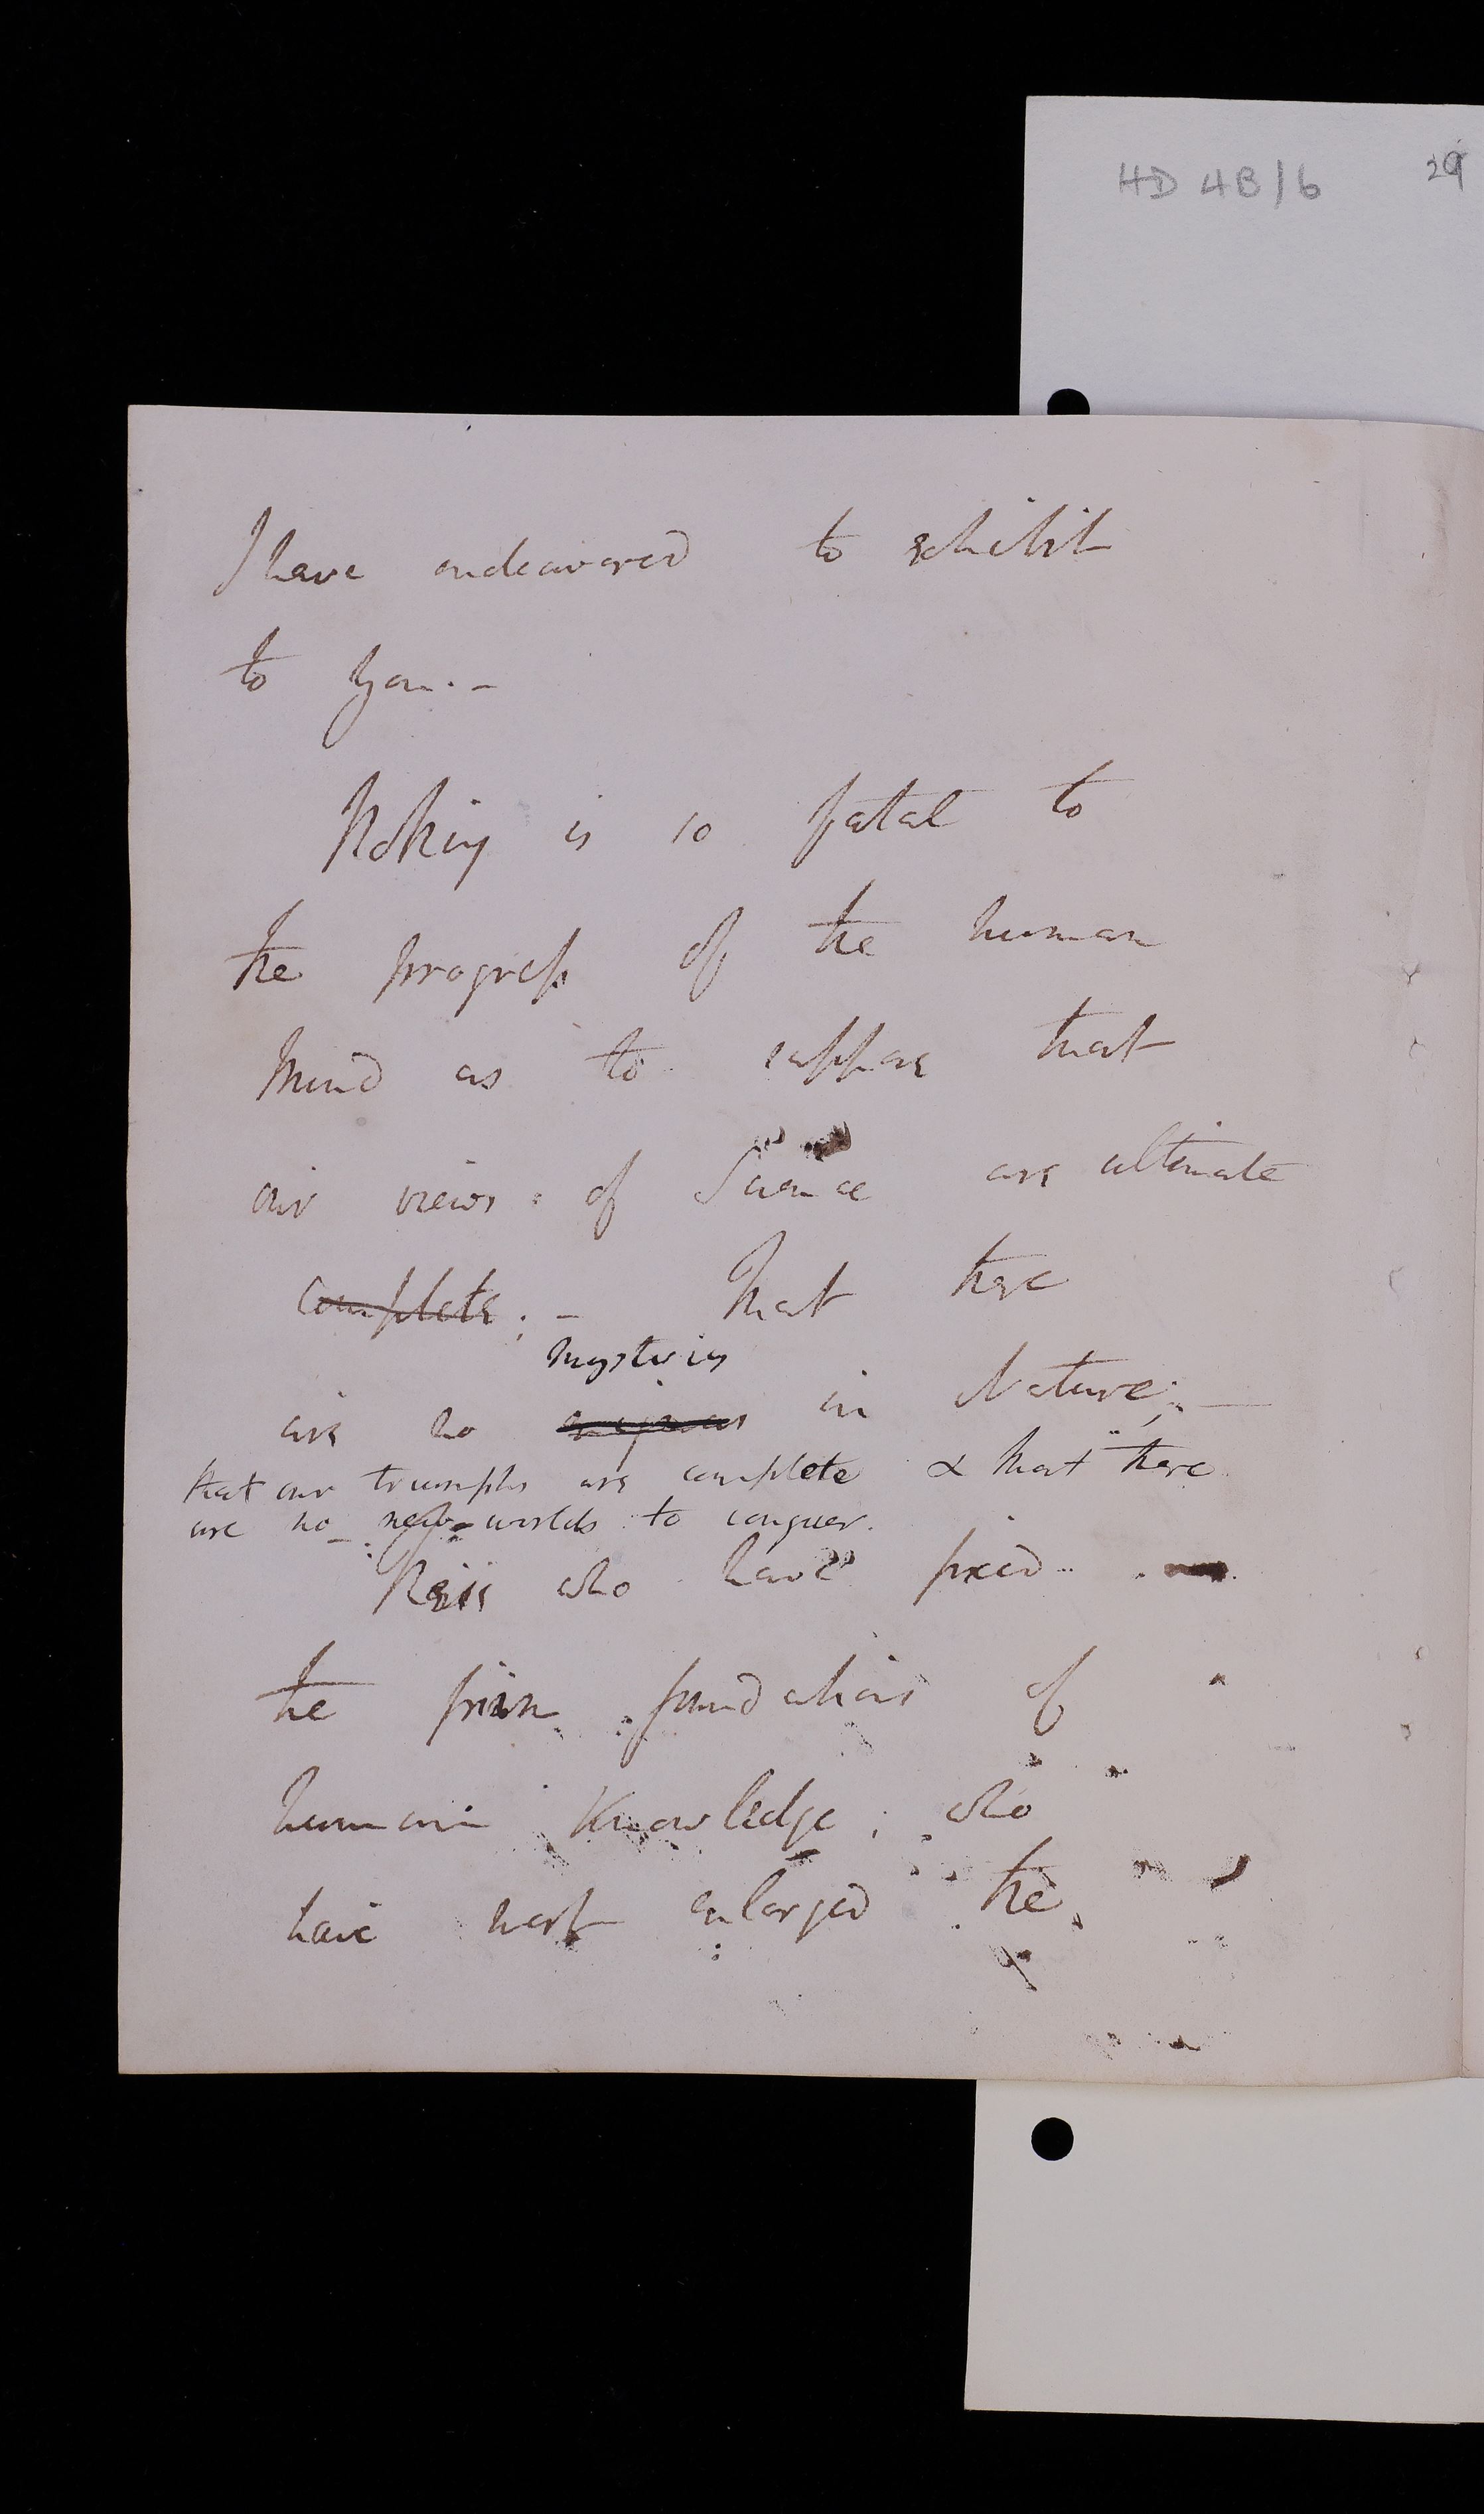 HD 4B/6 29
I have endeavored to exhibit
to you. -
Nothing is so fatal to
the progress of the human
Mind as to suppose that
our views of Science are ultimate
complete; - that there
mysteries
are no enigmas in Nature; -
that our triumphs are complete & that there
are no new worlds to conquer.
Those who have fixed
the firm foundations of
human Knowledge; who
have most enlarged the